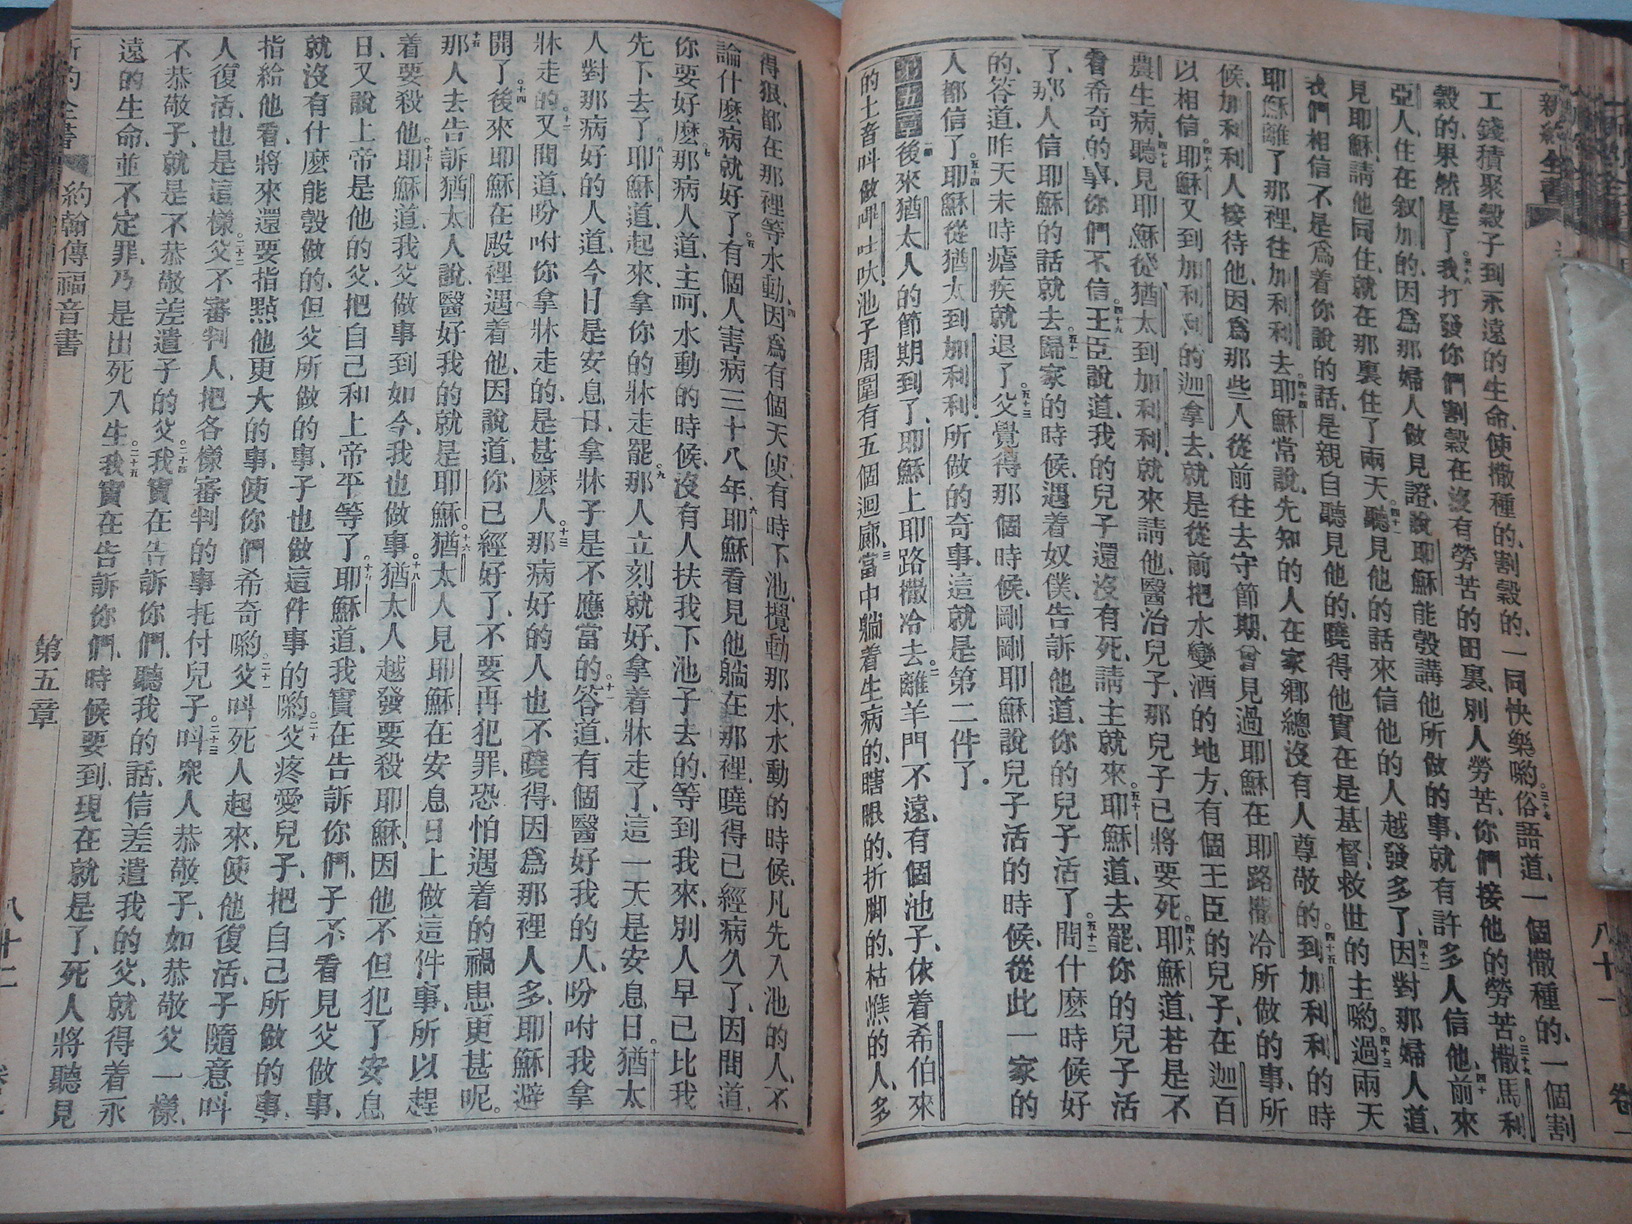 新約全書
八十一
工錢積聚穀子到永遠的生命、使撒種的、割穀的、一同快樂喲。三十七俗語道、一個撒種的、一個割
穀的、果然是了。三十八我打發你們割穀在沒有勞苦的田裏、別人勞苦、你們接他的勞苦。三十九撒馬利
亞人、住在叙加的、因爲那婦人做見證、說耶穌能彀講他所做的事、就有許多人信他。四十前來
見耶穌、請他同住、就在那裏住了兩天。四十一聽見他的話、來信他的人、越發多了。四十二因對那婦人道、
我們相信、不是爲着你說的話、是親自聽見他的、曉得他實在是基督救世的主喲。四十三過兩天
耶穌離了那裡、往加利利去。四十四耶穌常說、先知的人、在家鄉總沒有人尊敬的。四十五到加利利的時
候、加利利人接待他、因爲那些人從前往去守節期、曾見過耶穌在耶路撒冷所做的事、所
以相信。四十六耶穌又到加利利的迦拿去、就是從前把水變酒的地方、有個王臣的兒子、在迦百
農生病。四十七聽見耶穌從猶太到加利利、就來請他醫治兒子、那兒子已將要死。四十八耶穌道、若是不
看希奇的事、你們不信。四十九王臣說道、我的兒子還沒有死、請主就來。五十耶穌道、去罷、你的兒子活
了、那人信耶穌的話就去。五十一歸家的時候、遇着奴僕、告訴他道、你的兒子活了。五十二問什麽時候好
的、答道、昨天未時瘧疾就退了。五十三父覺得那個時候、剛剛耶穌說兒子活的時候、從此一家的
人都信了。五十四耶穌從猶太到加利利、所做的奇事、這就是第二件了。
第五章 一後來猶太人的節期到了、耶穌上耶路撒冷去。二離羊門不遠、有個池子、依着希伯來
的土音叫做畢士大、池子周圍有五個迴廊。三當中躺着生病的、瞎眼的、折脚的、枯憔的人、多
得狠、都在那裡等水動。四因爲有個天使、有時下池、攪動那水、水動的時候、凡先入池的人、不
論什麽病就好了。五有個人害病三十八年。六耶穌看見他躺在那裡、曉得已經病久了、因問道、
你要好麽。七那病人道、主呵、水動的時候、沒有人扶我下池子去的、等到我來、別人早已比我
先下去了。八耶穌道、起來、拿你的牀走罷。九那人立刻就好、拿着牀走了、這一天是安息日。十猶太
人對那病好的人道、今日是安息日、拿牀子是不應當的。十一答道、有個醫好我的人、吩咐我拿
牀走的。十二又問道、吩咐你拿牀走的、是甚麽人。十三那病好的人也不曉得、因爲那裡人多、耶穌避
開了。十四後來耶穌在殿裡遇着他、因說道、你已經好了、不要再犯罪、恐怕遇着的禍患更甚呢。
十五那人去告訴猶太人說、醫好我的就是耶穌。十六猶太人見耶穌在安息日上做這件事、所以趕
着要殺他。十七耶穌道、我父做事到如今、我也做事。十八猶太人越發要殺耶穌、因他不但犯了安息
日、又說上帝是他的父、把自己和上帝平等了。十九耶穌道、我實在告訴你們、子不看見父做事、
就沒有什麽能彀做的、但父所做的事、子也做這件事的喲。二十父疼愛兒子、把自己所做的事、
指給他看、將來還要指點他更大的事、使你們希奇喲。二十一父叫死人起來、使他復活、子隨意叫
人復活、也是這樣。二十二父不審判人、把各樣審判的事托付兒子。二十三叫衆人恭敬子、如恭敬父一樣、
不恭敬子、就是不恭敬差遣子的父。二十四我實在告訴你們、聽我的話、信差遣我的父、就得着永
遠的生命、並不定罪、乃是出死入生。二十五我實在告訴你們、時候要到、現在就是了、死人將聽見
新約全書
約翰傳福音書
第五章
八十二